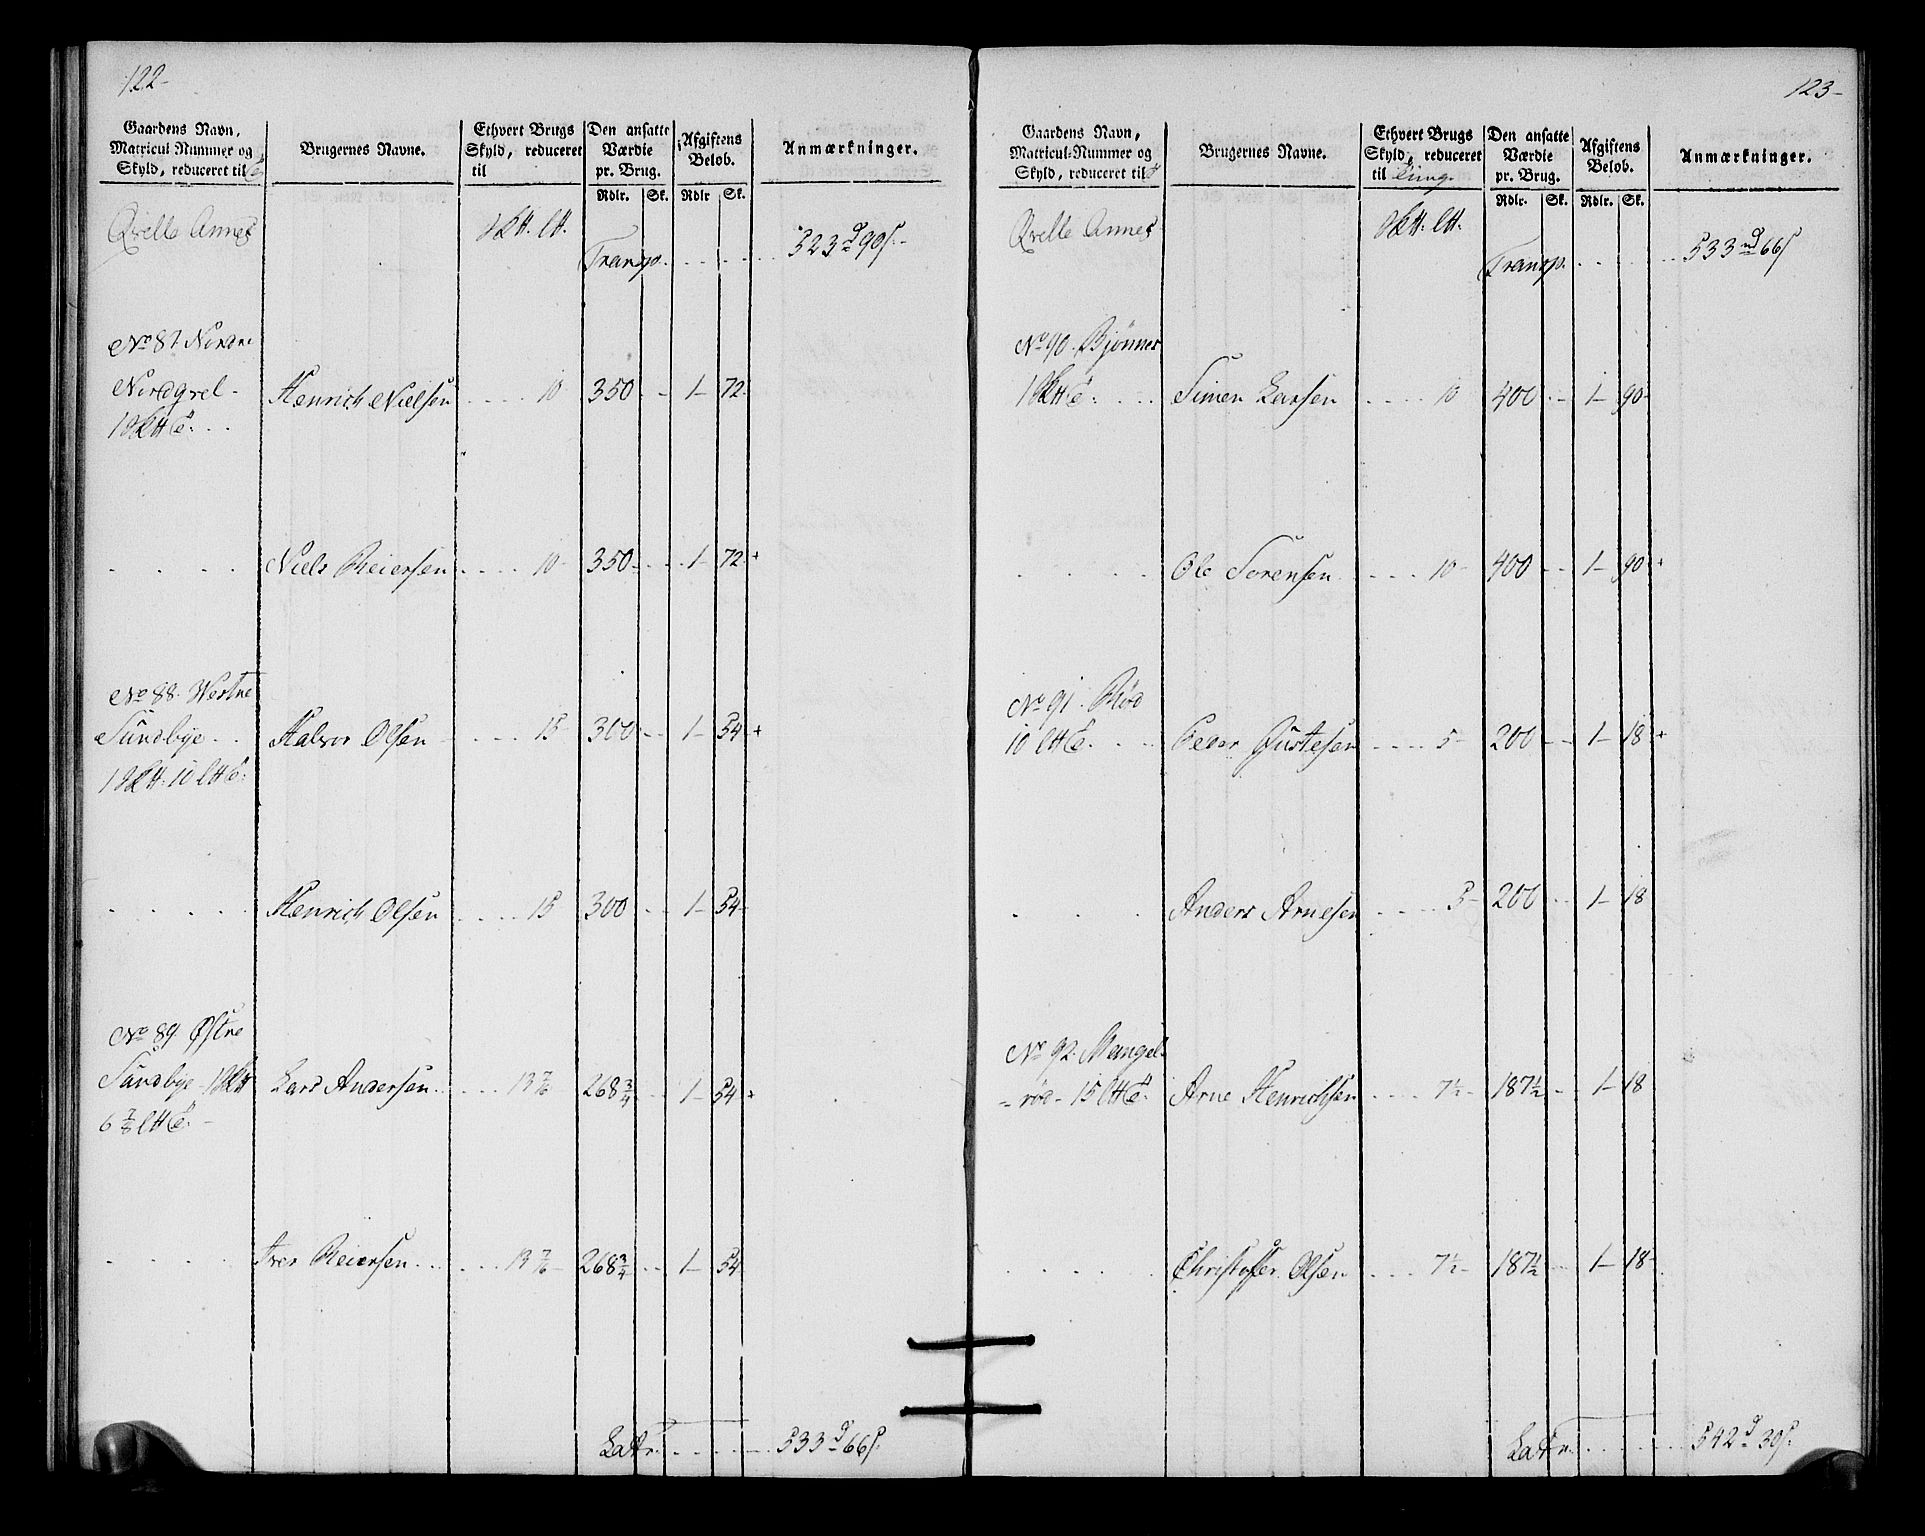 122-
Gaardens Navn, Matricul-Nummer og Skyld, reduceret til
Brugernes Navne.
Ethvert Brugs Skyld, reduceret til
Den ansatte Værdie pr. Brug.
Afgiftens Beløb.
Anmærkninger.
Rdlr. Sk. Rdlr Sk.
Qvelle Annex
Transp. . . . . . 523 90
No 87 Nordre
Nordgrel - Henrich Nielsen . . . . 10 350 - - 1 - 72
Niels Reiersen . . . . 10 - 350 - - 1 - 72 +
No 88. Westre
Sundbye . . Halvor Olsen . . . . 15 300 - - 1 - 54 +
Henrich Olsen . . . . 15 300 - - 1 - 54
No 89 Østre
Sundbye Lars Andersen . . . . 13 7/16 268 3/4 - - 1 - 54 +
Iver Reiersen . . . . 13 7/16 268 3/4 - - 1 - 54
Latr. . . . . 533 66
123-
Gaardens Navn, Matricul-Nummer og Skyld, reduceret til
Brugernes Navne.
Ethvert Brugs Skyld, reduceret til Tung.
Den ansatte Værdie pr. Brug.
Afgiftens Beløb.
Anmærkninger.
Rdlr. Sk. Rdlr. Sk.
Qvelle Annex
Transp. . . . . . 533 66
No 90. Bjønnes
Simen Larsen . . . . 10 400 - - 1 - 90
Ole Sørensen . . . . 10 - 400 - - 1 - 90 +
No 91. Rød
Peder Justesen . . . . 5 - 200 - - 1 - 18 +
Anders Arnesen . . . . 5 - 200 - - 1 - 18
No 92. Mangel-
=rød - Arne Henrichsen . . . . 7 1/2 - 187 1/2 - - 1 - 18
Christoffer Olsen . . . . 7 1/2 - 187 1/2 - - 1 - 18
Latr. . . . . 542 30